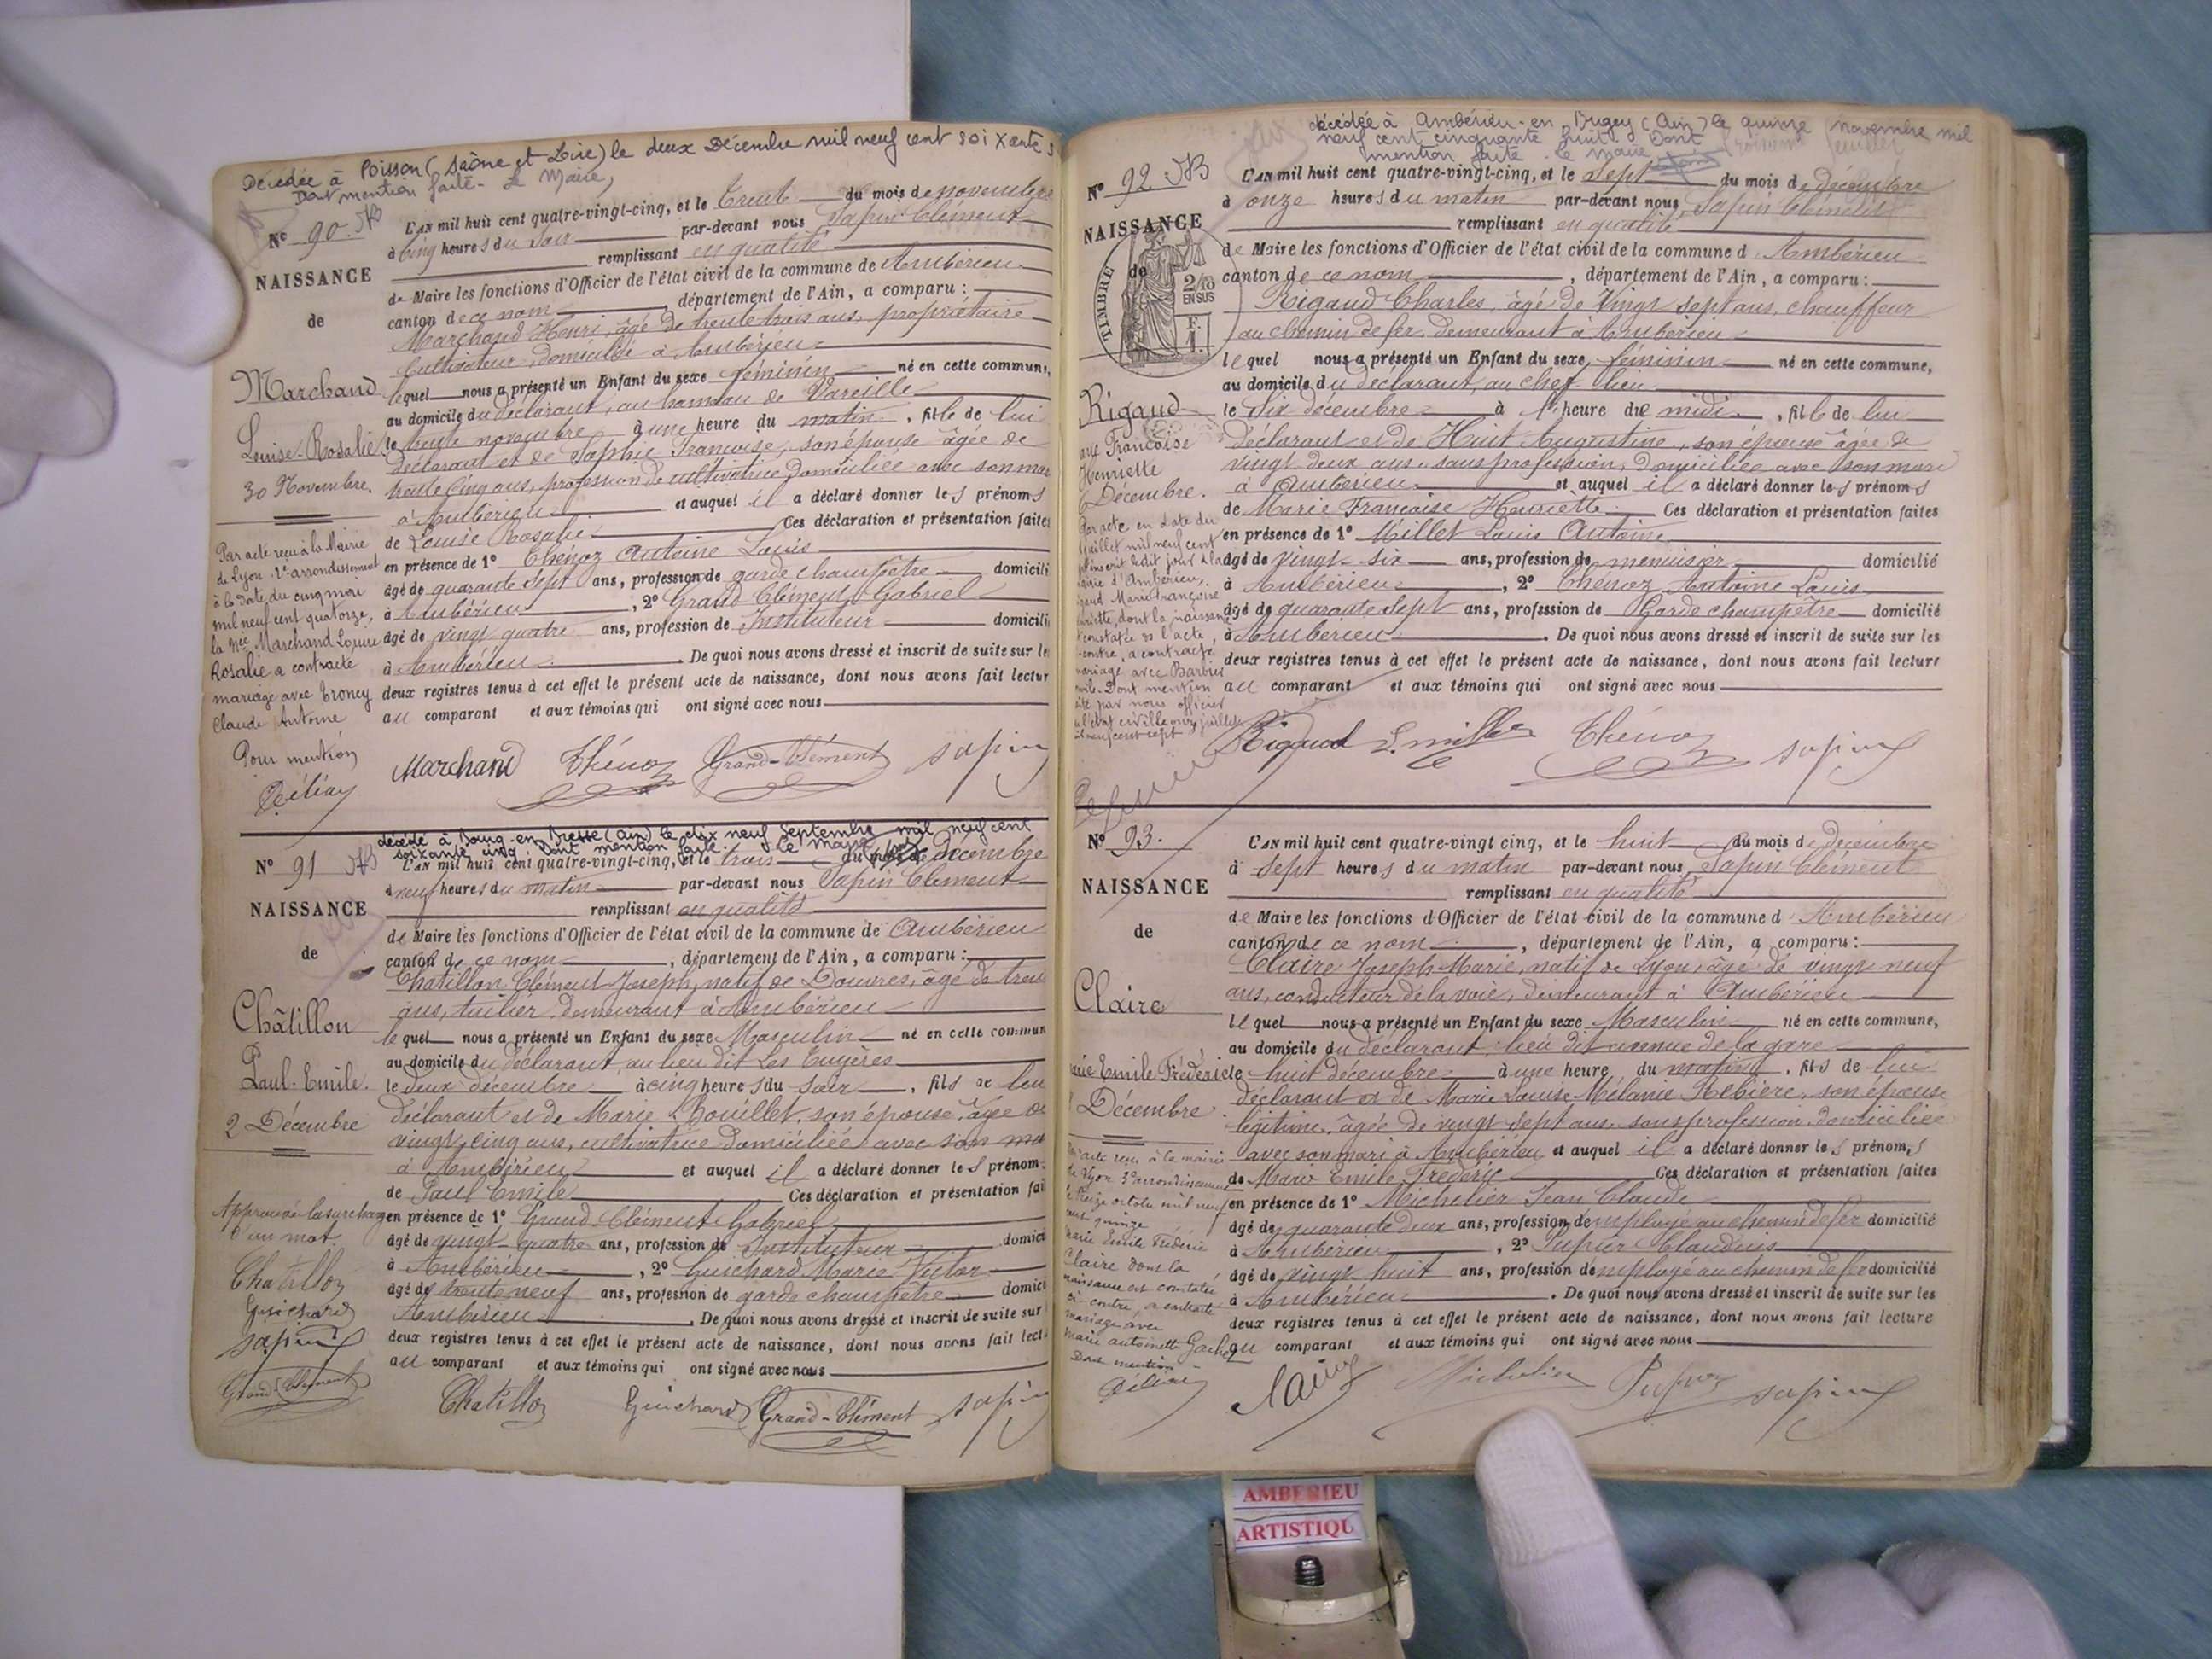 Décédée à Poisson (Saône et Loire) le deux Décembre mil neuf cent soixante
Dont mention faite - Le Maire,
N° 90.
NAISSANCE
de
Marchand
Louise-Rosalie
30 Novembre.
Par acte reçu à la Mairie
de Lyon arrondissement
à la date du cinq mai
mil neuf cent quatorze,
la née Marchand Louise
Rosalie a contracté
mariage avec Troncy
Claude Antoine
Pour mention
L'AN mil huit cent quatre-vingt-cinq, et le trente du mois de novembre
à cinq heures du soir par-devant nous Sapin Clément
remplissant en qualité
de Maire les fonctions d'Officier de l'état civil de la commune de Ambérieu
canton de ce nom, département de l'Ain, a comparu :
Marchand Henri, âgé de trente trois ans, propriétaire
cultivateur, domicilié à Ambérieu
lequel nous a présenté un Enfant du sexe féminin né en cette commune,
au domicile du déclarant, au hameau de Vareille
le trente novembre à une heure du matin, fille de lui
déclarant et de Françoise, son épouse âgée de
trente cinq ans, profession de cultivatrice domiciliée avec son mari
à Ambérieu et auquel il a déclaré donner les prénoms
de Louise Rosalie Ces déclaration et présentation faites
en présence de 1° Thénoz Antoine Louis
âgé de quarante sept ans, profession de garde champêtre domicili
à Ambérieu, 2° Grand Clément Gabriel
âgé de vingt quatre ans, profession de Instituteur domicili
à Ambérieu. De quoi nous avons dressé et inscrit de suite sur le
deux registres tenus à cet effet le présent acte de naissance, dont nous avons fait lectur
au comparant et aux témoins qui ont signé avec nous
Marchand Thénoz Grand-Clément Sapin
décédé à Bourg-en-Bresse (Ain) le dix neuf Septembre mil neuf cent
soixante cinq Dont mention faite. Le Maire
N° 91
NAISSANCE
de
Châtillon
Paul-Emile.
2 Décembre
Approuvé la surcharge
d'un mot
Chatillon
Guichard
Sapin
Grand-Clément
L'AN mil huit cent quatre-vingt-cinq, et le trois du mois de décembre
à neuf heures du matin par-devant nous Sapin Clément
remplissant en qualité
de Maire les fonctions d'Officier de l'état civil de la commune de Ambérieu
canton de ce nom, département de l'Ain, a comparu :
Chatillon Clément Joseph, natif de Douvres, âgé de trente
ans, tuilier, demeurant à Ambérieu
lequel nous a présenté un Enfant du sexe Masculin né en cette commun
au domicile du déclarant au lieu dit Les Tuyères
le deux décembre à cinq heures du soir, fils de lui
déclarant et de Marie Bouillet, son épouse âgée de
vingt cinq ans, cultivatrice domiciliée avec son mari
à Ambérieu et auquel il a déclaré donner les prénom
de Paul Emile Ces déclaration et présentation fai
en présence de 1° Grand Clément Gabriel
âgé de vingt-quatre ans, profession de Instituteur domici
à Ambérieu, 2° Guichard Marie Victor
âgé de trente neuf ans, profession de garde champêtre domici
Ambérieu. De quoi nous avons dressé et inscrit de suite sur
deux registres tenus à cet effet le présent acte de naissance, dont nous avons fait lect
au comparant et aux témoins qui ont signé avec nous
Chatillon Guichard Grand-Clément Sapin
décédée à Ambérieu-en-Bugey (Ain) le quinze novembre mil
neuf cent cinquante huit. Dont
mention faite. Le Maire
N° 92.
NAISSANCE
de
TIMBRE
2/10
EN SUS
F.
1.
Rigaud
Françoise
Henriette
Décembre.
L'AN mil huit cent quatre-vingt-cinq, et le sept du mois de décembre
à onze heures du matin par-devant nous Sapin Clément
remplissant en qualité
de Maire les fonctions d'Officier de l'état civil de la commune d Ambérieu
canton de ce nom, département de l'Ain, a comparu :
Rigaud Charles, âgé de vingt sept ans, chauffeur
au chemin de fer, demeurant à Ambérieu
lequel nous a présenté un Enfant du sexe féminin né en cette commune,
au domicile du déclarant, au chef lieu
le six décembre à 1 heure du midi, fille de lui
déclarant et de Huit Augustine, son épouse âgée de
vingt deux ans, sans profession, domiciliée avec son mari
à Ambérieu et auquel il a déclaré donner les prénoms
de Marie Françoise Henriette Ces déclaration et présentation faites
en présence de 1° Millet Louis Antoine
âgé de vingt-six ans, profession de menuisier domicilié
à Ambérieu, 2° Thénoz Antoine Louis
âgé de quarante sept ans, profession de Garde champêtre domicilié
à Ambérieu. De quoi nous avons dressé et inscrit de suite sur les
deux registres tenus à cet effet le présent acte de naissance, dont nous avons fait lecture
au comparant et aux témoins qui ont signé avec nous
acte en date du
juillet mil neuf cent
d'Ambérieu,
Marie Françoise
dont la naissance
constatée l'acte
contre, a contracté
mariage avec Barbier
Dont mention
par nous officier
Rigaud L. Millet Thénoz Sapin
N° 93.
NAISSANCE
de
Claire
Emile Frédéric
Décembre
acte reçu à la mairie
de Lyon arrondissement
treize octobre mil neuf
cent quinze
Marie Emile Frédéric
Claire dont la
naissance est constatée
ci-contre, a contracté
mariage avec
Marie Antoinette
Dont mention
L'AN mil huit cent quatre-vingt cinq, et le huit du mois de décembre
à sept heures du matin par-devant nous Sapin Clément
remplissant en qualité
de Maire les fonctions d'Officier de l'état civil de la commune d Ambérieu
canton de ce nom, département de l'Ain, a comparu :
Claire Joseph Marie, natif de Lyon, âgé de vingt neuf
ans, conducteur de la voie, demeurant à Ambérieu
lequel nous a présenté un Enfant du sexe Masculin né en cette commune,
au domicile du déclarant, lieu dit avenue de la gare
le huit décembre à une heure du matin, fils de lui
déclarant et de Marie Louise Mélanie Rebière, son épouse
légitime, âgée de vingt sept ans, sans profession, domiciliée
avec son mari à Ambérieu et auquel il a déclaré donner les prénoms
de Marie Emile Frédéric Ces déclaration et présentation faites
en présence de 1° Michelier Jean Claude
âgé de quarante deux ans, profession de employé au chemin de fer domicilié
à Ambérieu, 2° Pupier Claudius
âgé de vingt huit ans, profession de employé au chemin de fer domicilié
à Ambérieu. De quoi nous avons dressé et inscrit de suite sur les
deux registres tenus à cet effet le présent acte de naissance, dont nous avons fait lecture
au comparant et aux témoins qui ont signé avec nous
Claire Michelier Pupier Sapin
AMBERIEU
ARTISTIQU